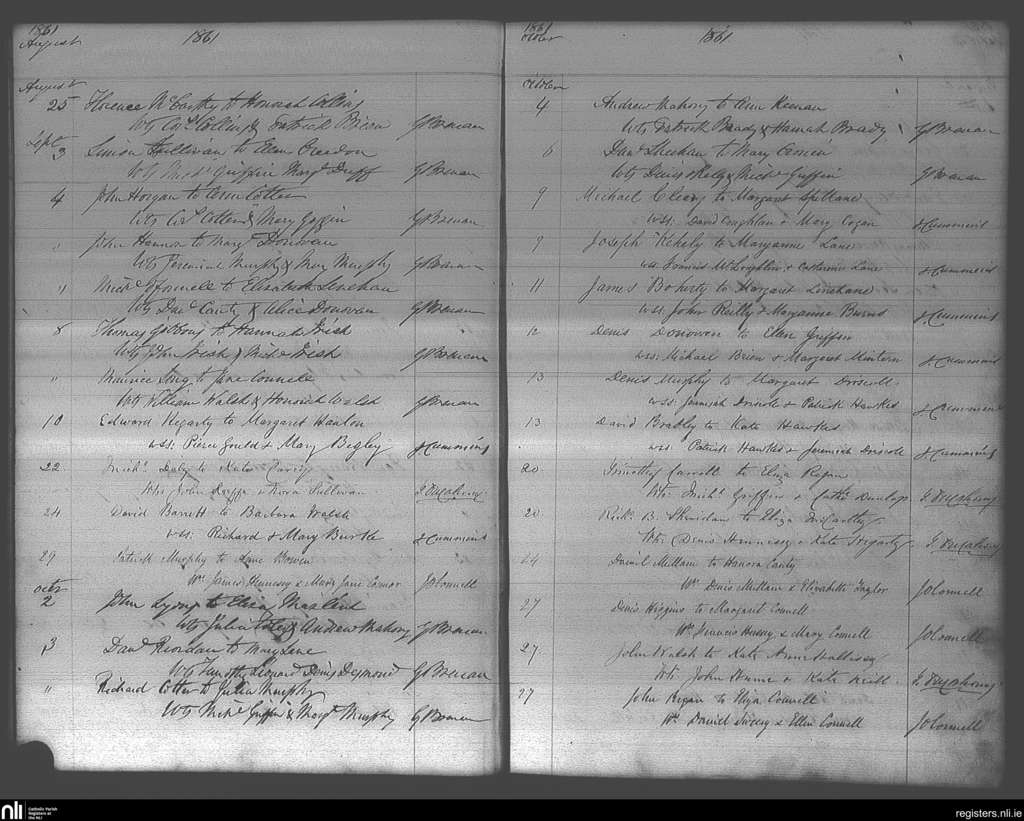 1861
August
1861
August
25 Florence McCarthy to Honorah Collins
Wts Cors Collins & Patrick Brien G Brenan
Sept
3 Simon Sullivan to Ellen Creedon
Wts Michl Griffin Margt Duff G Brenan
4 John Horgan to Cotter
Wts Cors Cotter & Mary G Brenan
" John Hannon to Margt Donovan
Wts Jeremiah Murphy & Mary Murphy G Brenan
" Michl Farrell to Elizabeth Linehan
Wts Danl Canty & Alice Donovan G Brenan
8 Thomas to Hannah Irish
Wts John Irish & Michl Irish G Brenan
" Maurice to Jane Connell
Wts William Walsh & Honorah Walsh G Brenan
10 Edward Hegarty to Margaret Hanlon
wss: Pierce Gould & Mary Begley J Cummins
22 Michl Daly to Kate
Wts John & Nora Sullivan
24 David Barrett to Barbara Walsh
wss: Richard & Mary Burke J Cummins
29 Patrick Murphy to Jane Bowen
Ws James Hennessy & Maria Jane Connor J O'Connell
Octr
2 John Lyons to Eliza
Wts Julia & Andrew Mahony G Brenan
3 Danl Riordan to Mary Lane
Wts Timothy Leonard Denis Desmond G Brenan
" Richard Cotter to Julia Murphy
Wts Michl Griffin & Margt Murphy G Brenan
1861
October
1861
October
4 Andrew Mahony to Ann Keenan
Wts Patrick Brady & Hannah Brady G Brenan
6 Danl Sheehan to Mary
Wts Denis & Michl Griffin G Brenan
9 Michael Cleary to Margaret Spillane
wss: David Coughlan & Mary Cogan J Cummins
9 Joseph to Maryanne Lane
wss: McLoghlin & Catherine Lane J Cummins
11 James Doherty to Margaret Linehane
wss. John Reilly & Maryanne Burns J Cummins
12 Denis Donovan to Ellen Griffin
wss: Michael Brien & Margaret J Cummins
13 Denis Murphy to Margaret Driscoll
wss: Jeremiah Driscole & Patrick Hawkes J Cummins
13 David Bradly to Kate Hawkes
wss. Patrick Hawkes & Jeremiah Driscole J Cummins
20 Timothy Carroll to Eliza Regan
Wts: Michl Griffin & Cathe Dunlop
20 Richd B. Sheridan to Eliza McCarthy
Wts: Denis Hennessy & Kate Hegarty
24 Daniel Mullam to Hanora Canty
Ws Denis Mullam & Elizabeth Taylor J O'Connell
27 Denis Higgins to Margaret Connell
Ws Francis Hussey & Mary Connell J O'Connell
27 John Walsh to Kate Anne
Wts John & Kate
27 John Regan to Eliza Connell
Ws Daniel & Ellen Connell J O'Connell
nli
Catholic Parish
Registers at
the NLI
registers.nli.ie